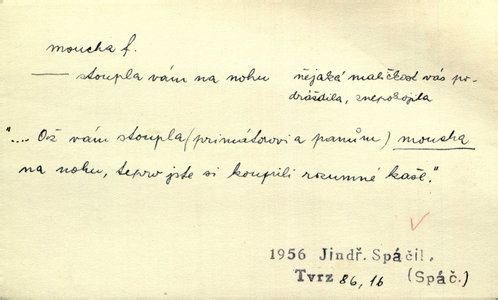 moucha f.
— stoupla vám na nohu nějaká maličkost vás po-
dráždila, znepokojila
".... Až vám stoupla (primátorovi a panům) moucha
na nohu, teprv jste si koupili rozumné kaše."
1956 Jindř. Spáčil,
Tvrz 86, 16 (Spáč.)